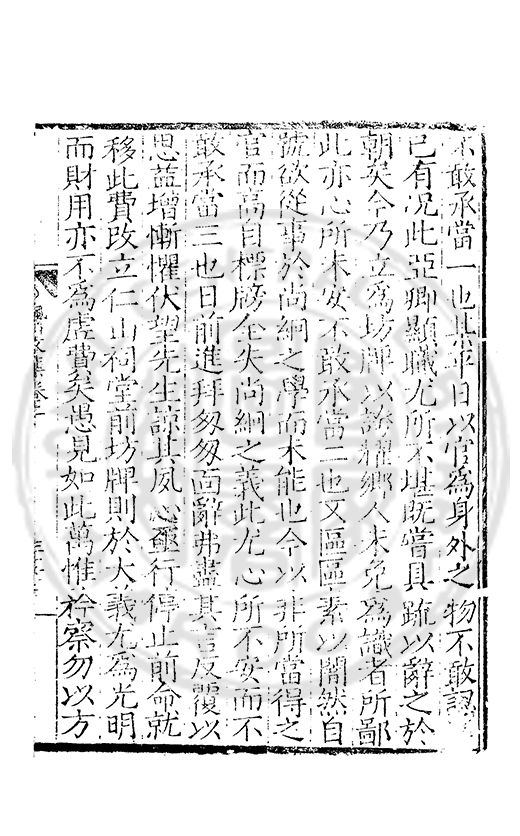 不敢承當一也某平日以官為身外之物不敢認
已有况此亞卿顯職尤所不堪既嘗具疏以辭之於
朝矣今乃立為坊牌以誇耀鄉人未免為識者所鄙
此亦心所未安不敢承當二也又區區素以闇然自
號欲從事於尚絅之學而未能也今以非所當得之
官而高自標牓全失尚絅之義此尤心所不安而不
敢承當三也日前進拜匆匆面辭弗盡其言反覆以
思益增慚懼伏望先生諒其夙心亟行停止前命就
移此費改立仁山祠堂前坊牌則於大義尤為光明
而財用亦不為虛費矣愚見如此萬惟矜察勿以方